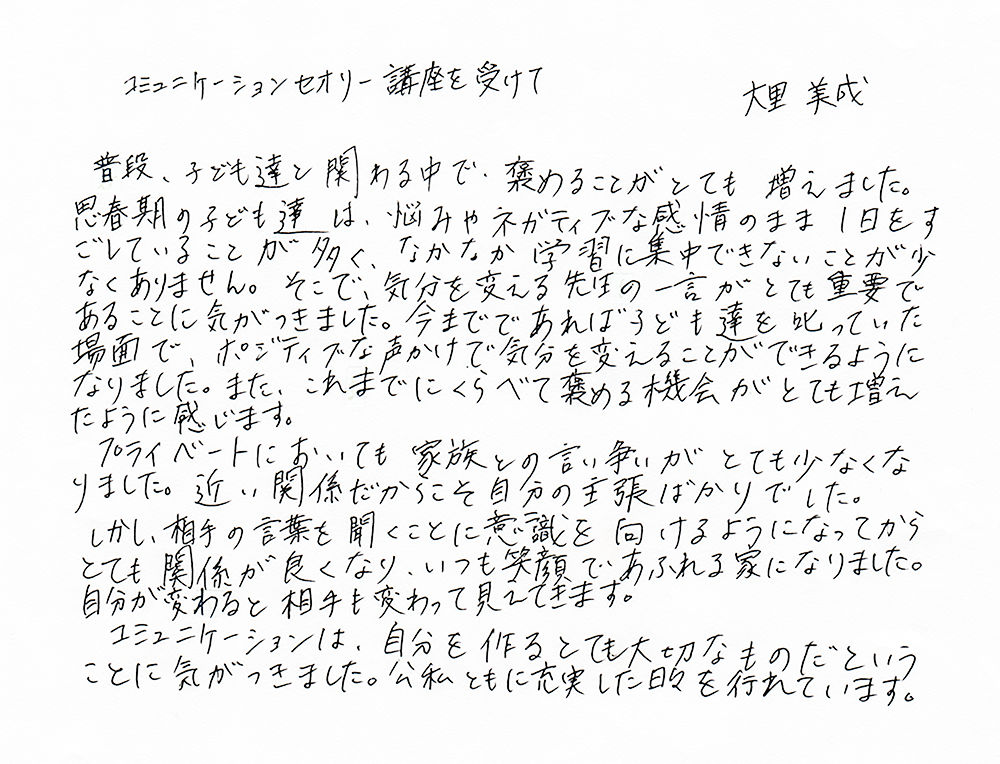 コミュニケーションセオリー講座を受けて
大里 美成
普段、子ども達と関わる中で、褒めることがとても 増えました。
思春期の子ども達は、悩みやネガティブな感情のまま 1日をす
ごしていることが多く、なかなか学習に集中できないことが少
なくありません。そこで、気分を変える先生の一言がとても重要で
あることに気がつきました。今までであれば子ども達を叱っていた
場面で、ポジティブな声かけで気分を変えることができるように
なりました。また、これまでにくらべて褒める機会がとても増え
たように感じます。
プライベートにおいても家族との言い争いがとても少なくな
りました。近い関係だからこそ自分の主張ばかりでした。
しかし、相手の言葉を聞くことに意識を向けるようになってから
とても関係が良くなり、いつも笑顔であふれる家になりました。
自分が変わると相手も変わって見えてきます。
コミュニケーションは、自分を作るとても大切なものだという
ことに気がつきました。公私ともに充実した日々を行れています。